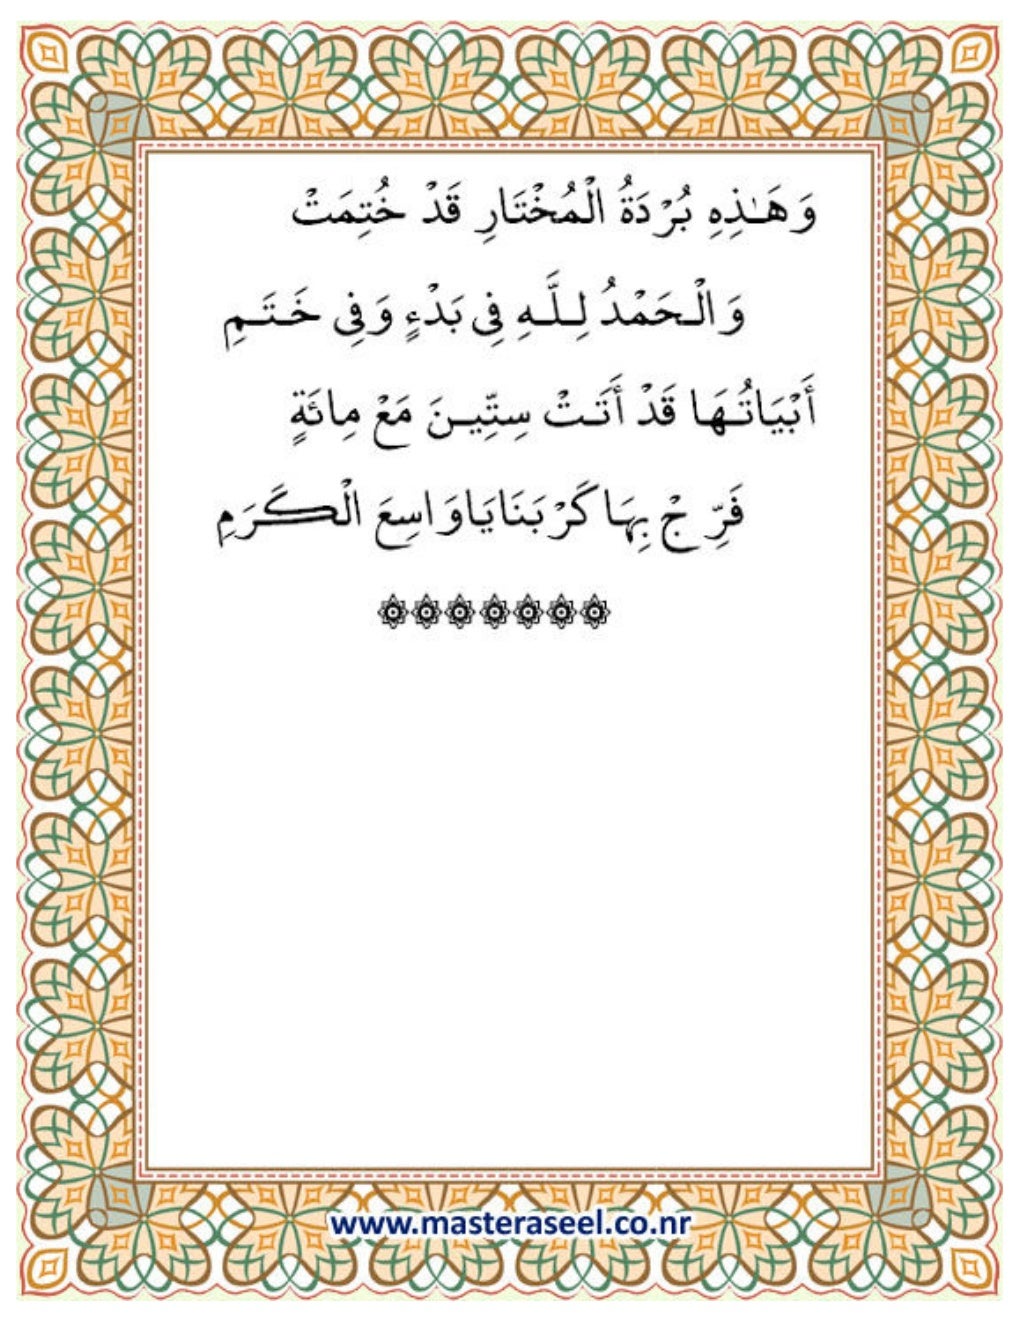 وَهَٰذِهِ بُرْدَةُ الْمُخْتَارِ قَدْ خُتِمَتْ
وَالْحَمْدُ لِلَّهِ فِي بَدْءٍ وَفِي خَتَمِ
أَبْيَاتُهَا قَدْ أَتَتْ سِتِّينَ مَعْ مِائَةٍ
فَرِّجْ بِهَا كَرْبَنَا يَا وَاسِعَ الْكَرَمِ
www.masteraseel.co.nr